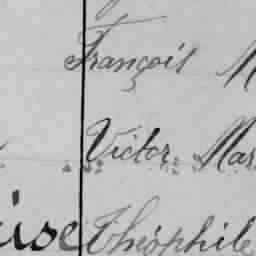 François M
Victor Mar
ise Théophile